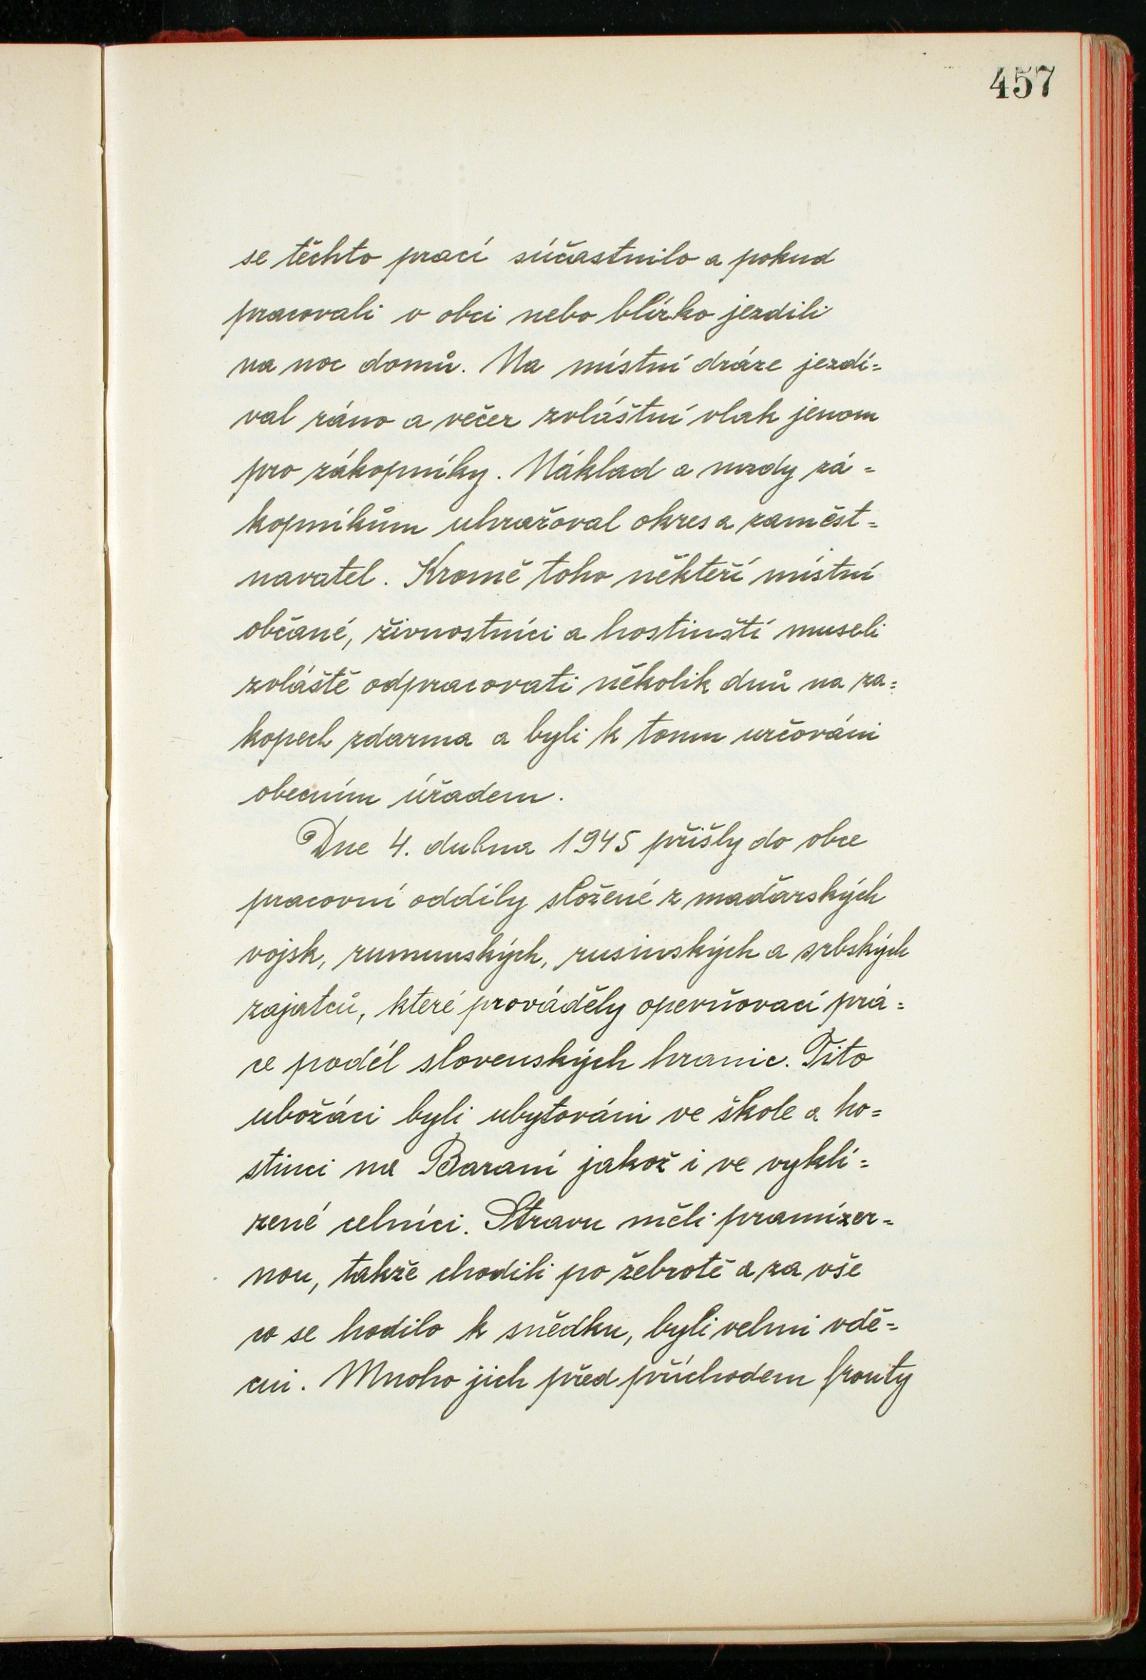 457
se těchto prací súčastnilo a pokud
pracovali v obci nebo blízko jezdili
na noc domů. Na místní dráze jezdí=
val ráno a večer zvláštní vlak jenom
pro zákopníky. Náklad a mzdy zá=
kopníkům uhražoval okres a zaměst=
navatel. Kromě toho někteří místní
občané, živnostníci a hostinští museli
zvláště odpracovati několik dnů na zá=
kopech zdarma a byli k tomu určováni
obecním úřadem.
Dne 4. dubna 1945 přišly do obce
pracovní oddíly složené z maďarských
vojsk, rumunských, rusínských a srbských
zajatců, které prováděly opevňovací prá=
ce podél slovenských hranic. Tito
ubožáci byli ubytováni ve škole a ho=
stinci na Baraní jakož i ve vykli=
zené celnici. Stravu měli pramizer=
nou, takže chodili po žebrotě a za vše
co se hodilo k snědku, byli velmi vdě=
čni. Mnoho jich před příchodem fronty